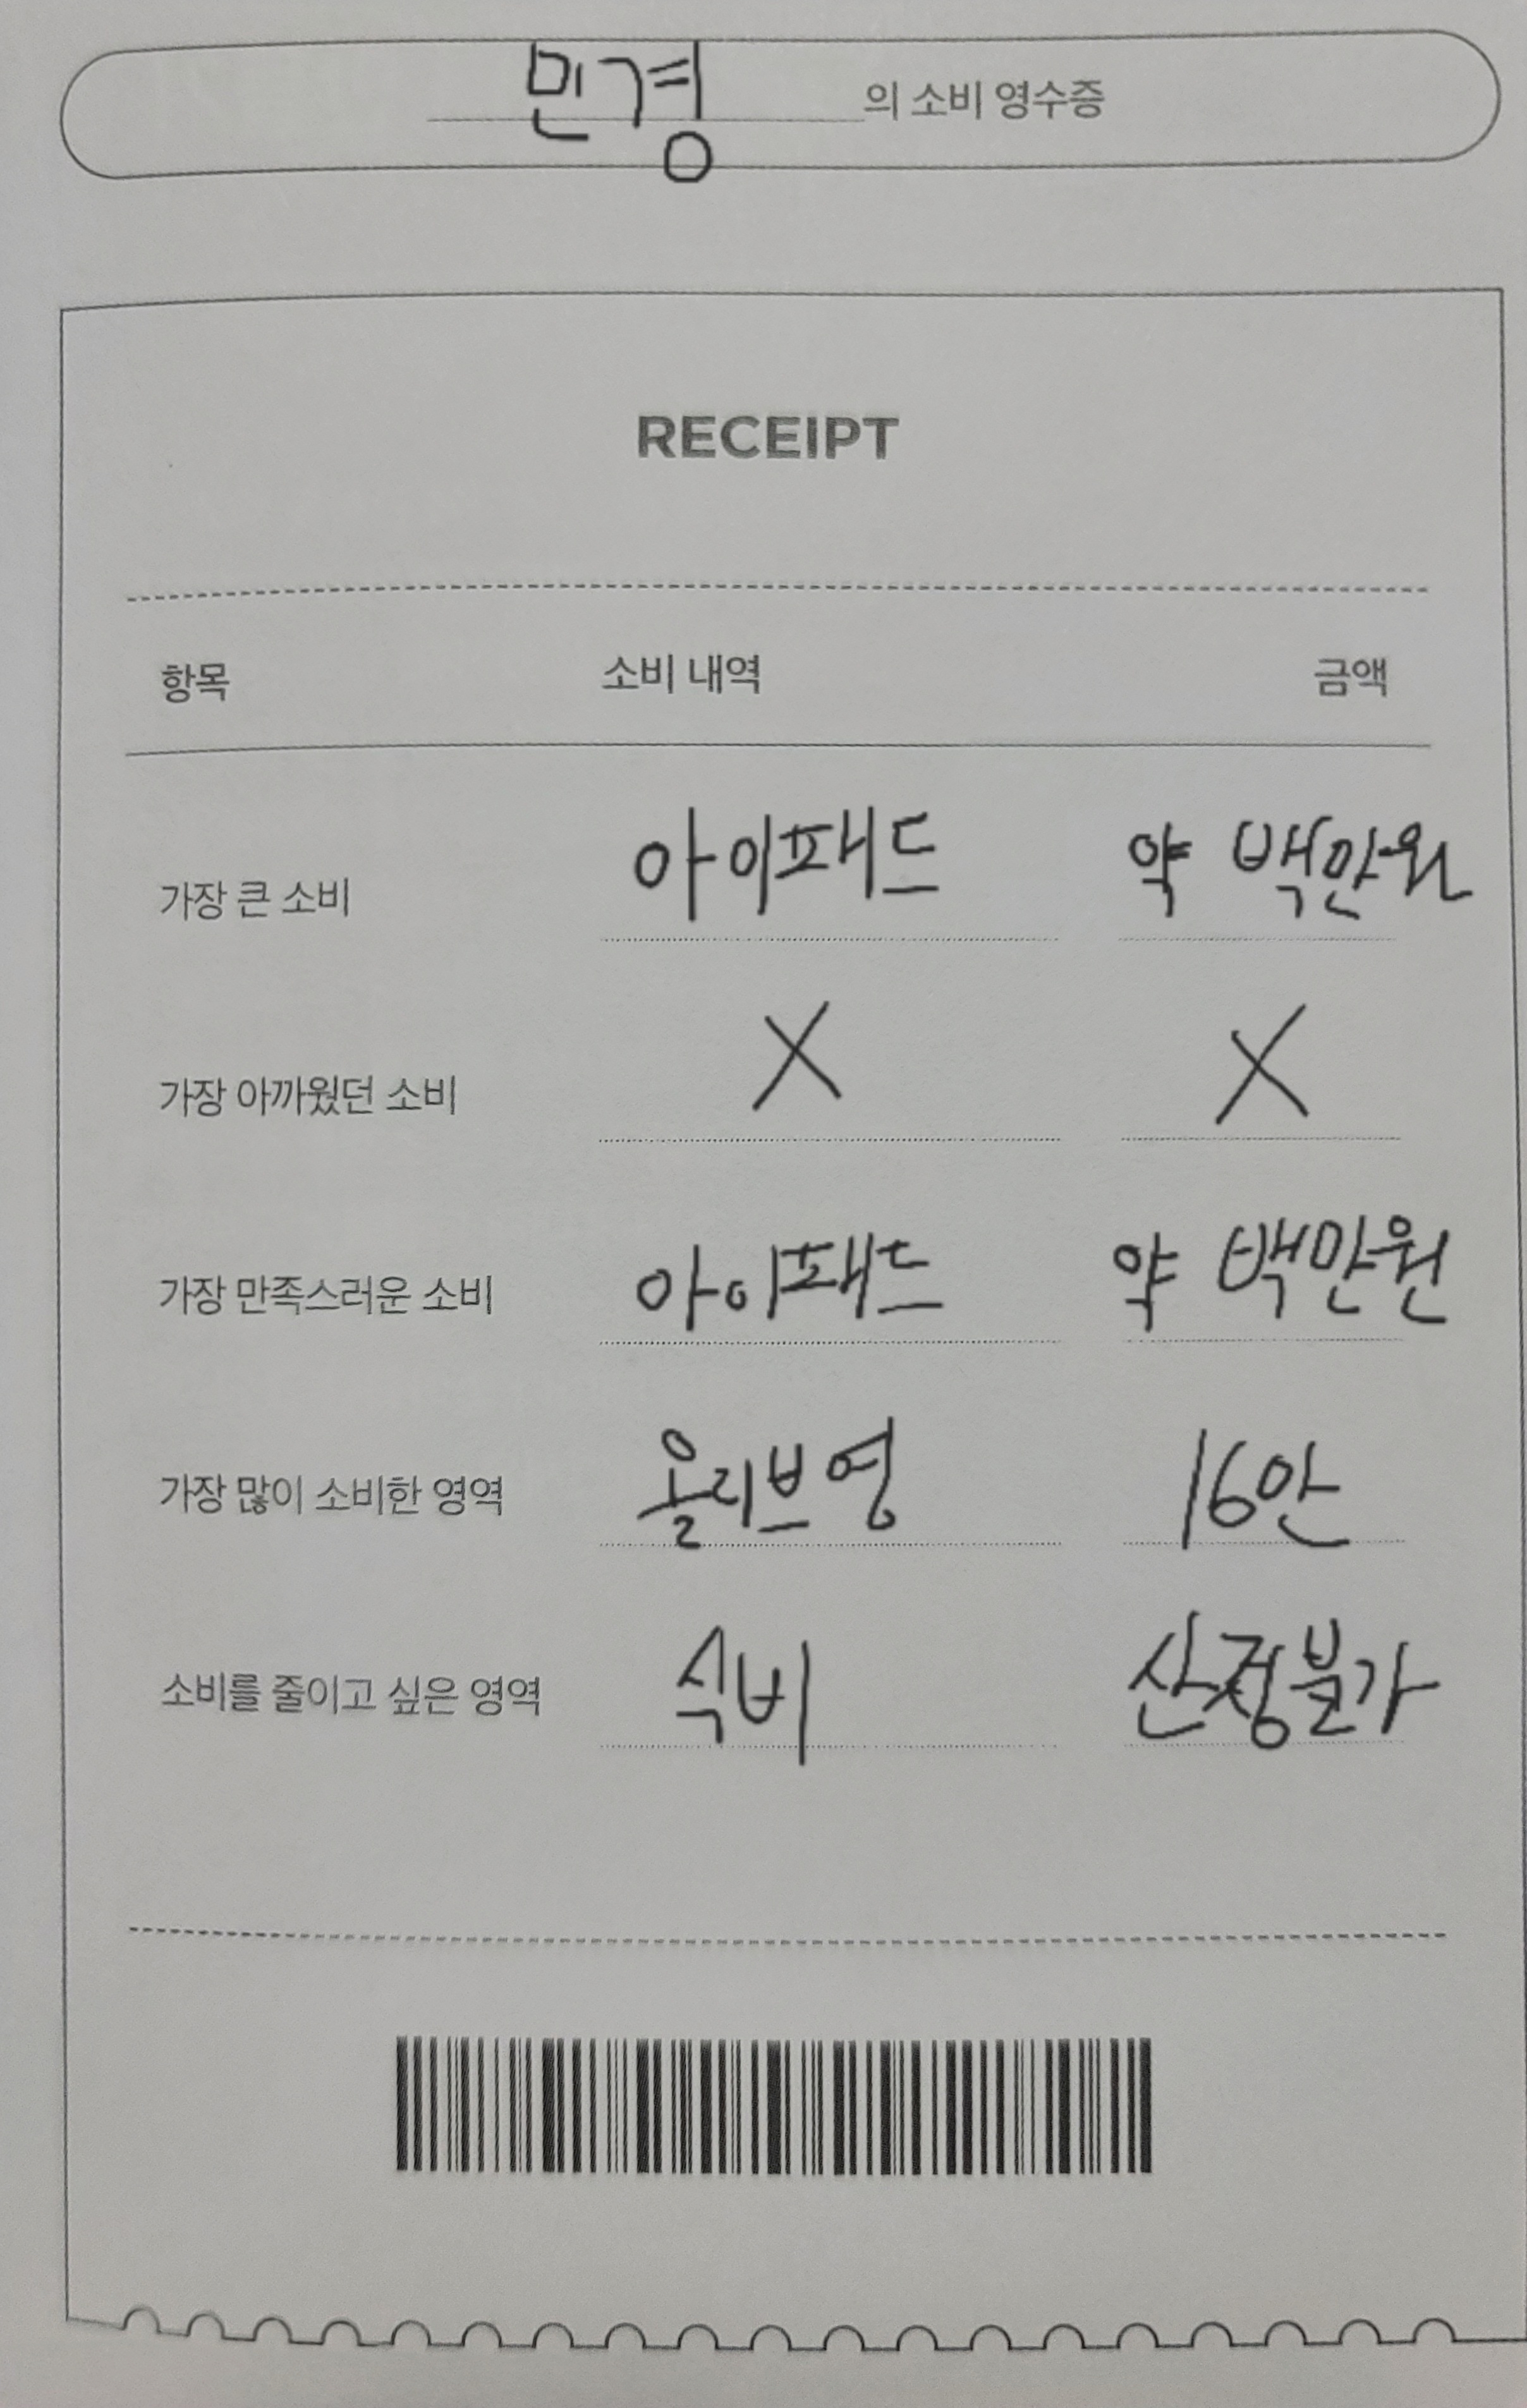 민경의 소비 영수증
RECEIPT
항목 소비 내역 금액
가장 큰 소비 아이패드 약 백만원
가장 아까웠던 소비 X X
가장 만족스러운 소비 아이패드 약 백만원
가장 많이 소비한 영역 올리브영 16만
소비를 줄이고 싶은 영역 식비 산정불가